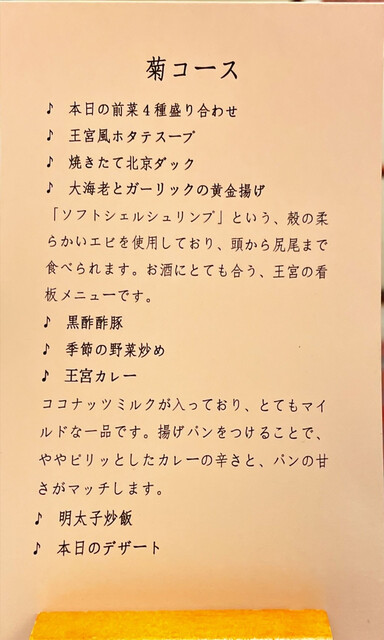 菊コース
♪ 本日の前菜４種盛り合わせ
♪ 王宮風ホタテスープ
♪ 焼きたて北京ダック
♪ 大海老とガーリックの黄金揚げ
「ソフトシェルシュリンプ」という、殻の柔
らかいエビを使用しており、頭から尻尾まで
食べられます。お酒にとても合う、王宮の看
板メニューです。
♪ 黒酢酢豚
♪ 季節の野菜炒め
♪ 王宮カレー
ココナッツミルクが入っており、とてもマイ
ルドな一品です。揚げパンをつけることで、
ややピリッとしたカレーの辛さと、パンの甘
さがマッチします。
♪ 明太子炒飯
♪ 本日のデザート